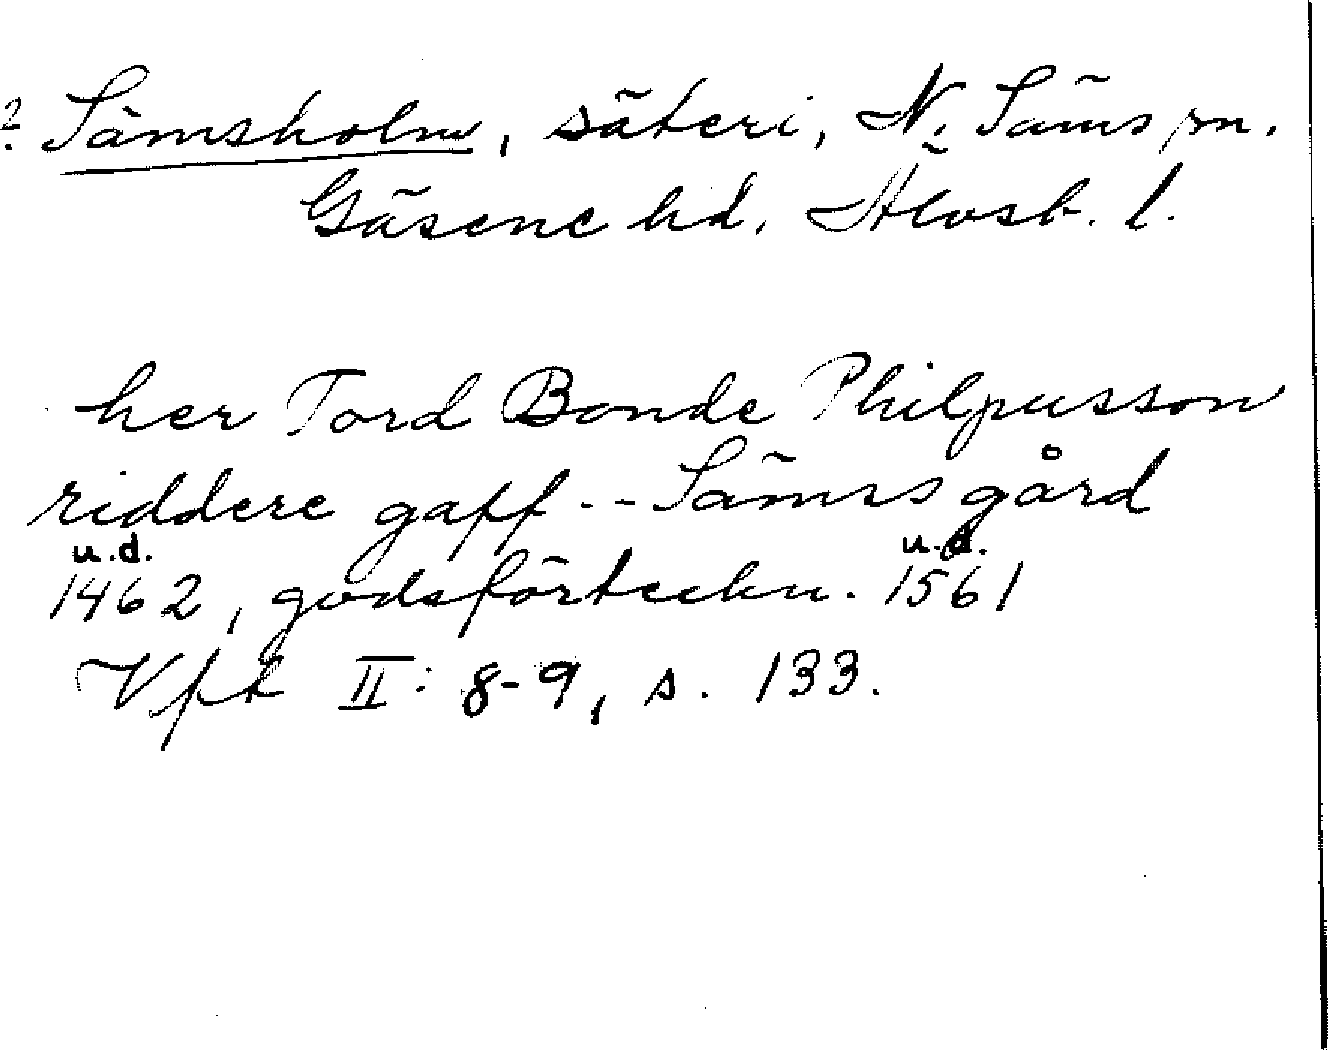 ? Sämsholm, säteri, N. Säms sn.
Gäsene hd, Älvsb. l.
her Tord Bonde Philpusson
riddere gaff -- Sämss gård
u.d. u.d.
1462, godsförteckn. 1561
Vft II: 8-9, s. 133.